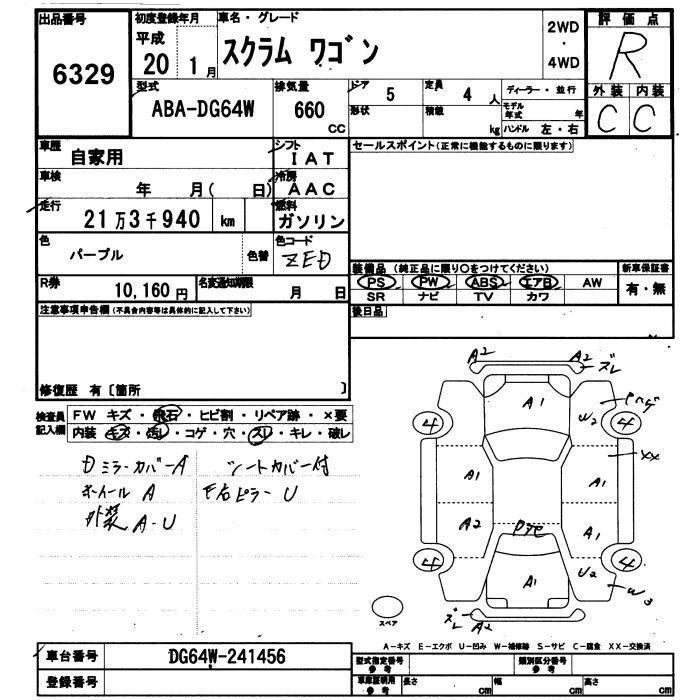 出品番号 初度登録年月 車名・グレード 評価点
6329 平成 20 1月 スクラム ワゴン 2WD・4WD R
型式 排気量 ドア 定員 ディーラー・並行 外装 内装
ABA-DG64W 660 CC 5 4 人 モデル年式 年 C C
形状 積載 kg ハンドル 左・右
車歴 自家用 シフト IAT セールスポイント(正常に機能するものに限ります)
車検 年 月( 日) 冷房 AAC
走行 21万3千940 km 燃料 ガソリン
色 パープル 色替 色コード ZED
装備品 (純正品に限り○をつけてください) 新車保証書
R券 10,160円 名変通知期限 月 日 PS PW ABS エアB AW 有・無
SR ナビ TV カワ
注意事項申告欄(不具合内容等は具体的に記入して下さい) 後日品
修復歴 有〔箇所 〕
検査員記入欄 FW キズ・飛石・ヒビ割・リペア跡・×要
内装 キズ・汚レ・コゲ・穴・スレ・キレ・破レ
Dミラーカバー A シートカバー付
ホイール A
外装 A-U
A2 A2 ズレ
A1
4 W2 4
XX
A1 A1
A2 A1
4 A1 U2 4
W3
ズレ A2
スペア
A-キズ E-エクボ U-凹み W-補修跡 S-サビ C-腐食 XX-交換済
車台番号 DG64W-241456 型式指定番号 参考 類別区分番号 参考
登録番号 車庫証明用 参考 長さ cm 幅 cm 高さ cm